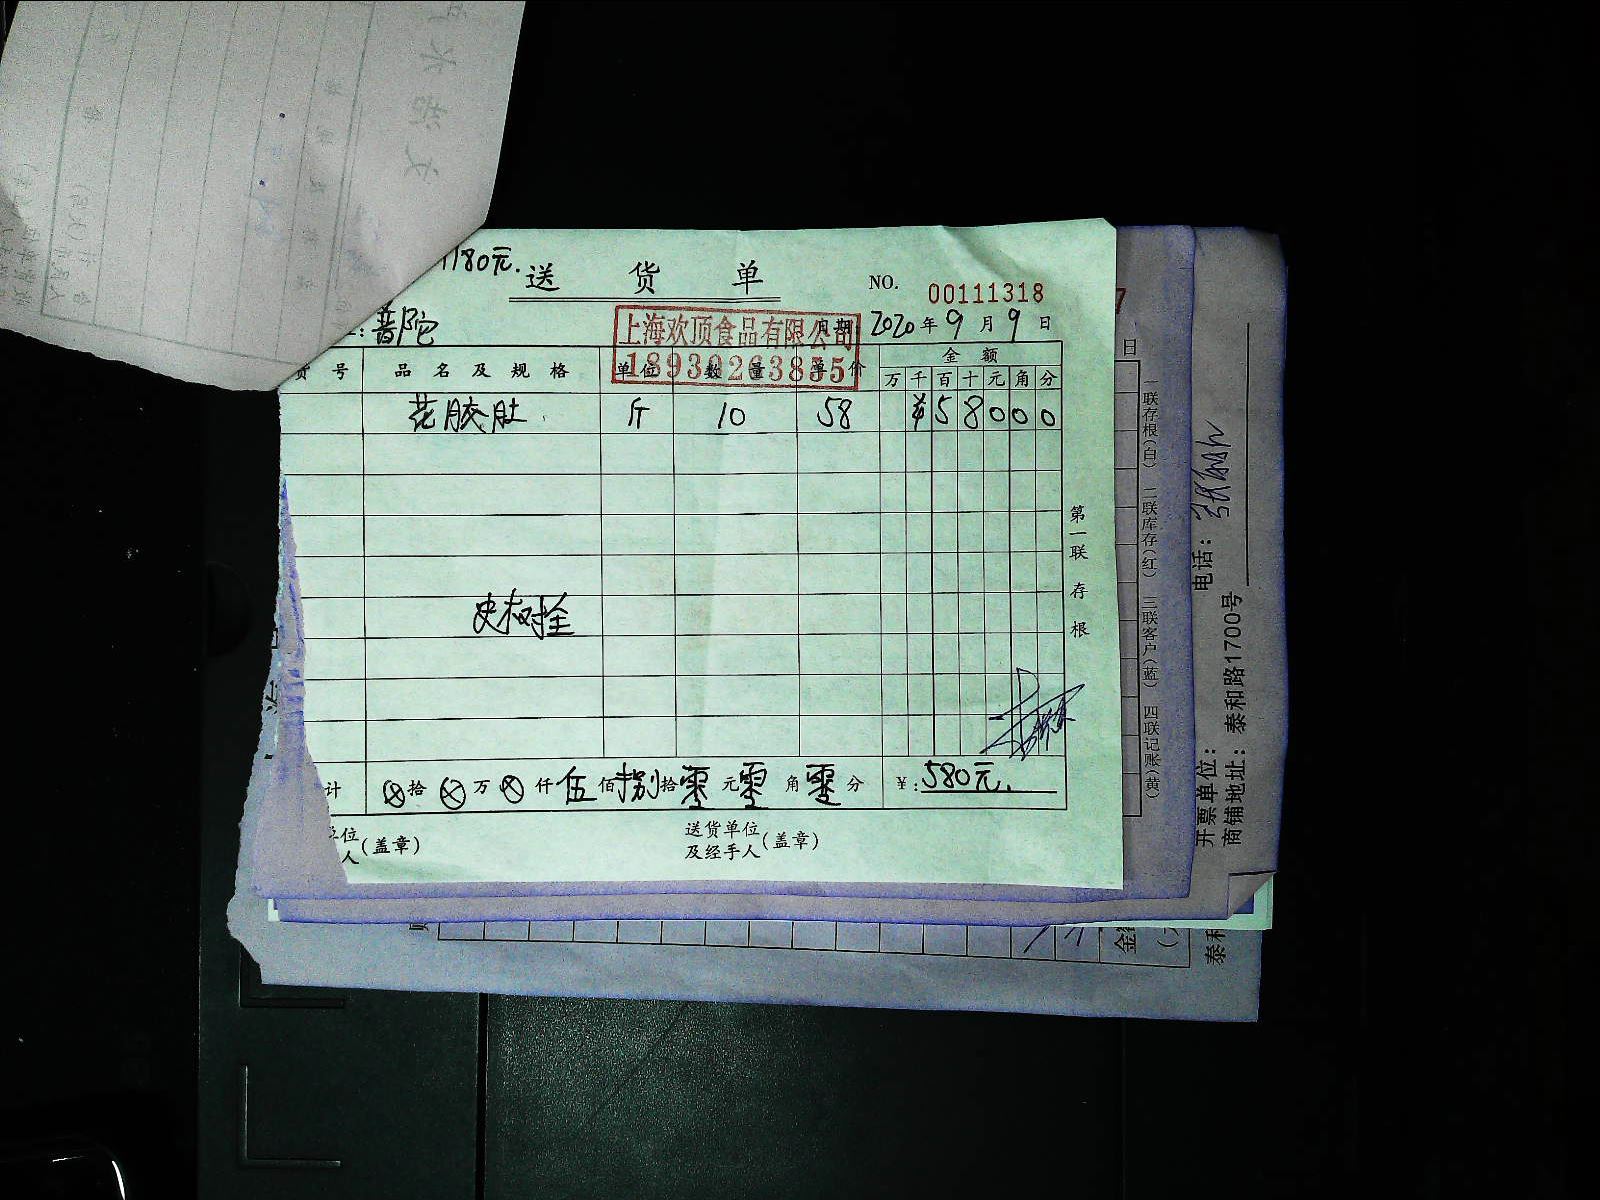 1180元.
送货单
NO. 00111318
普陀
上海欢顶食品有限公司
18930263855
日期: 2020年9月9日
货号 品名及规格 单位 数量 单价 金额
万千百十元角分
花胶肚 斤 10 58 ¥58000
史树拴
第一联存根
计 ⊗拾⊗万⊗仟伍佰捌拾零元零角零分 ¥:580元.
单位
人(盖章)
送货单位
及经手人(盖章)
7
日
一联存根(白) 二联库存(红) 三联客户(蓝) 四联记账(黄)
开票单位: 电话:
商铺地址: 泰和路1700号
金额
泰和